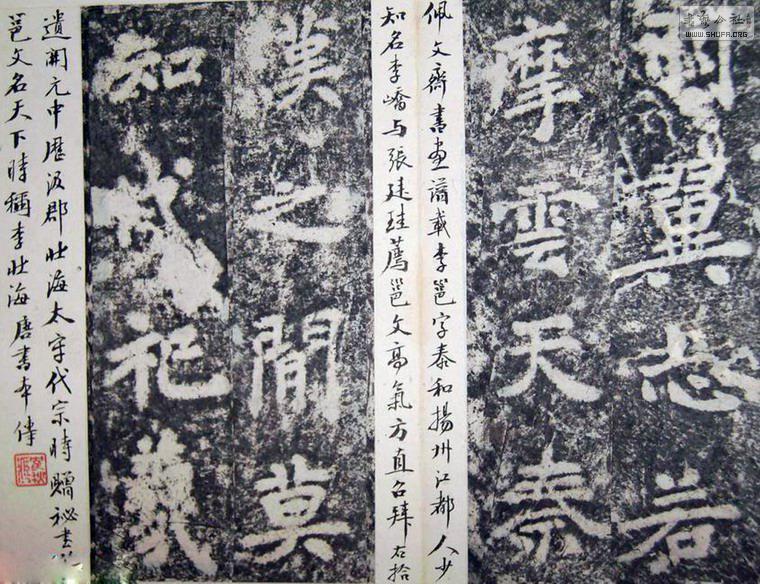 翼若
摩雲天秦
佩文齋書畫譜載李邕字泰和揚州江都人少
知名李嶠与張廷珪薦邕文高氣方直召拜右拾
漢之間莫
知祀
遺開元中歷汲郡北海太守代宗時贈祕書
邕文名天下時稱李北海唐書本傳
公社
WWW.SHUFA.ORG